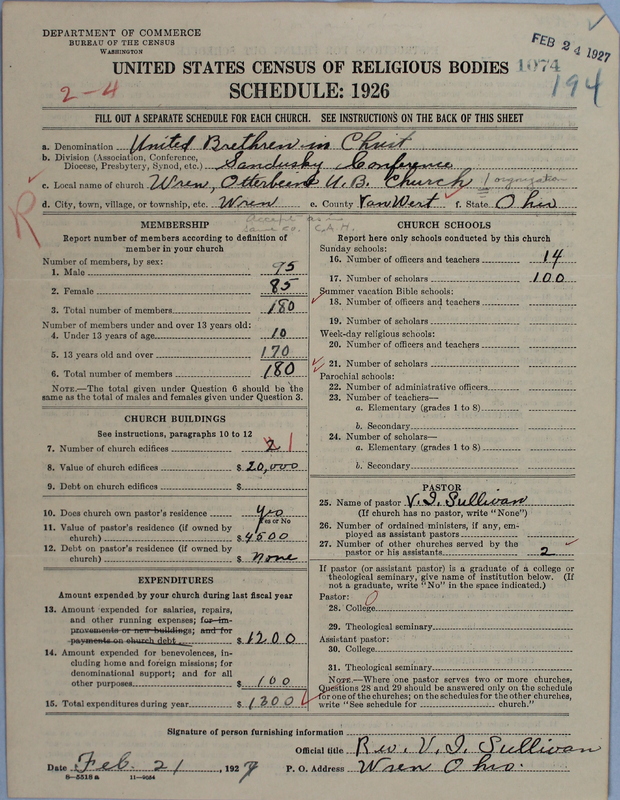 DEPARTMENT OF COMMERCE
BUREAU OF THE CENSUS
WASHINGTON
FEB 24 1927
UNITED STATES CENSUS OF RELIGIOUS BODIES 1074
194
2-4
SCHEDULE: 1926
FILL OUT A SEPARATE SCHEDULE FOR EACH CHURCH. SEE INSTRUCTIONS ON THE BACK OF THIS SHEET
a. Denomination United Brethren in Christ
b. Division (Association, Conference,
Diocese, Presbytery, Synod, etc.) Sandusky Conference
c. Local name of church Wren, Otterbein U.B. Church 1 organization
d. City, town, village, or township, etc. Wren e. County VanWert f. State Ohio
R
Accept as in
same co. C.A.H.
MEMBERSHIP
Report number of members according to definition of
member in your church
Number of members, by sex:
1. Male 95
2. Female 85
3. Total number of members 180
Number of members under and over 13 years old:
4. Under 13 years of age 10
5. 13 years old and over 170
6. Total number of members 180
NOTE.—The total given under Question 6 should be the
same as the total of males and females given under Question 3.
CHURCH BUILDINGS
See instructions, paragraphs 10 to 12
7. Number of church edifices 2 1
8. Value of church edifices $ 20,000
9. Debt on church edifices $
10. Does church own pastor's residence Yes
Yes or No
11. Value of pastor's residence (if owned by
church) $ 4500
12. Debt on pastor's residence (if owned by
church) $ None
EXPENDITURES
Amount expended by your church during last fiscal year
13. Amount expended for salaries, repairs,
and other running expenses; for im-
provements or new buildings; and for
payments on church debt $ 1200
14. Amount expended for benevolences, in-
cluding home and foreign missions; for
denominational support; and for all
other purposes $ 100
15. Total expenditures during year $ 1300
CHURCH SCHOOLS
Report here only schools conducted by this church
Sunday schools:
16. Number of officers and teachers 14
17. Number of scholars 100
Summer vacation Bible schools:
18. Number of officers and teachers
19. Number of scholars
Week-day religious schools:
20. Number of officers and teachers
21. Number of scholars
Parochial schools:
22. Number of administrative officers
23. Number of teachers—
a. Elementary (grades 1 to 8)
b. Secondary
24. Number of scholars—
a. Elementary (grades 1 to 8)
b. Secondary
PASTOR
25. Name of pastor V. I. Sullivan
(If church has no pastor, write "None")
26. Number of ordained ministers, if any, em-
ployed as assistant pastors
27. Number of other churches served by the
pastor or his assistants 2
If pastor (or assistant pastor) is a graduate of a college or
theological seminary, give name of institution below. (If
not a graduate, write "No" in the space indicated.)
Pastor: 0
28. College
29. Theological seminary
Assistant pastor:
30. College
31. Theological seminary
NOTE.—Where one pastor serves two or more churches,
Questions 28 and 29 should be answered only on the schedule
for one of the churches; on the schedules for the other churches,
write "See schedule for church."
Signature of person furnishing information
Official title Rev. V. I. Sullivan
Date Feb. 21, 1927 P. O. Address Wren Ohio.
8—5518 a 11—9054